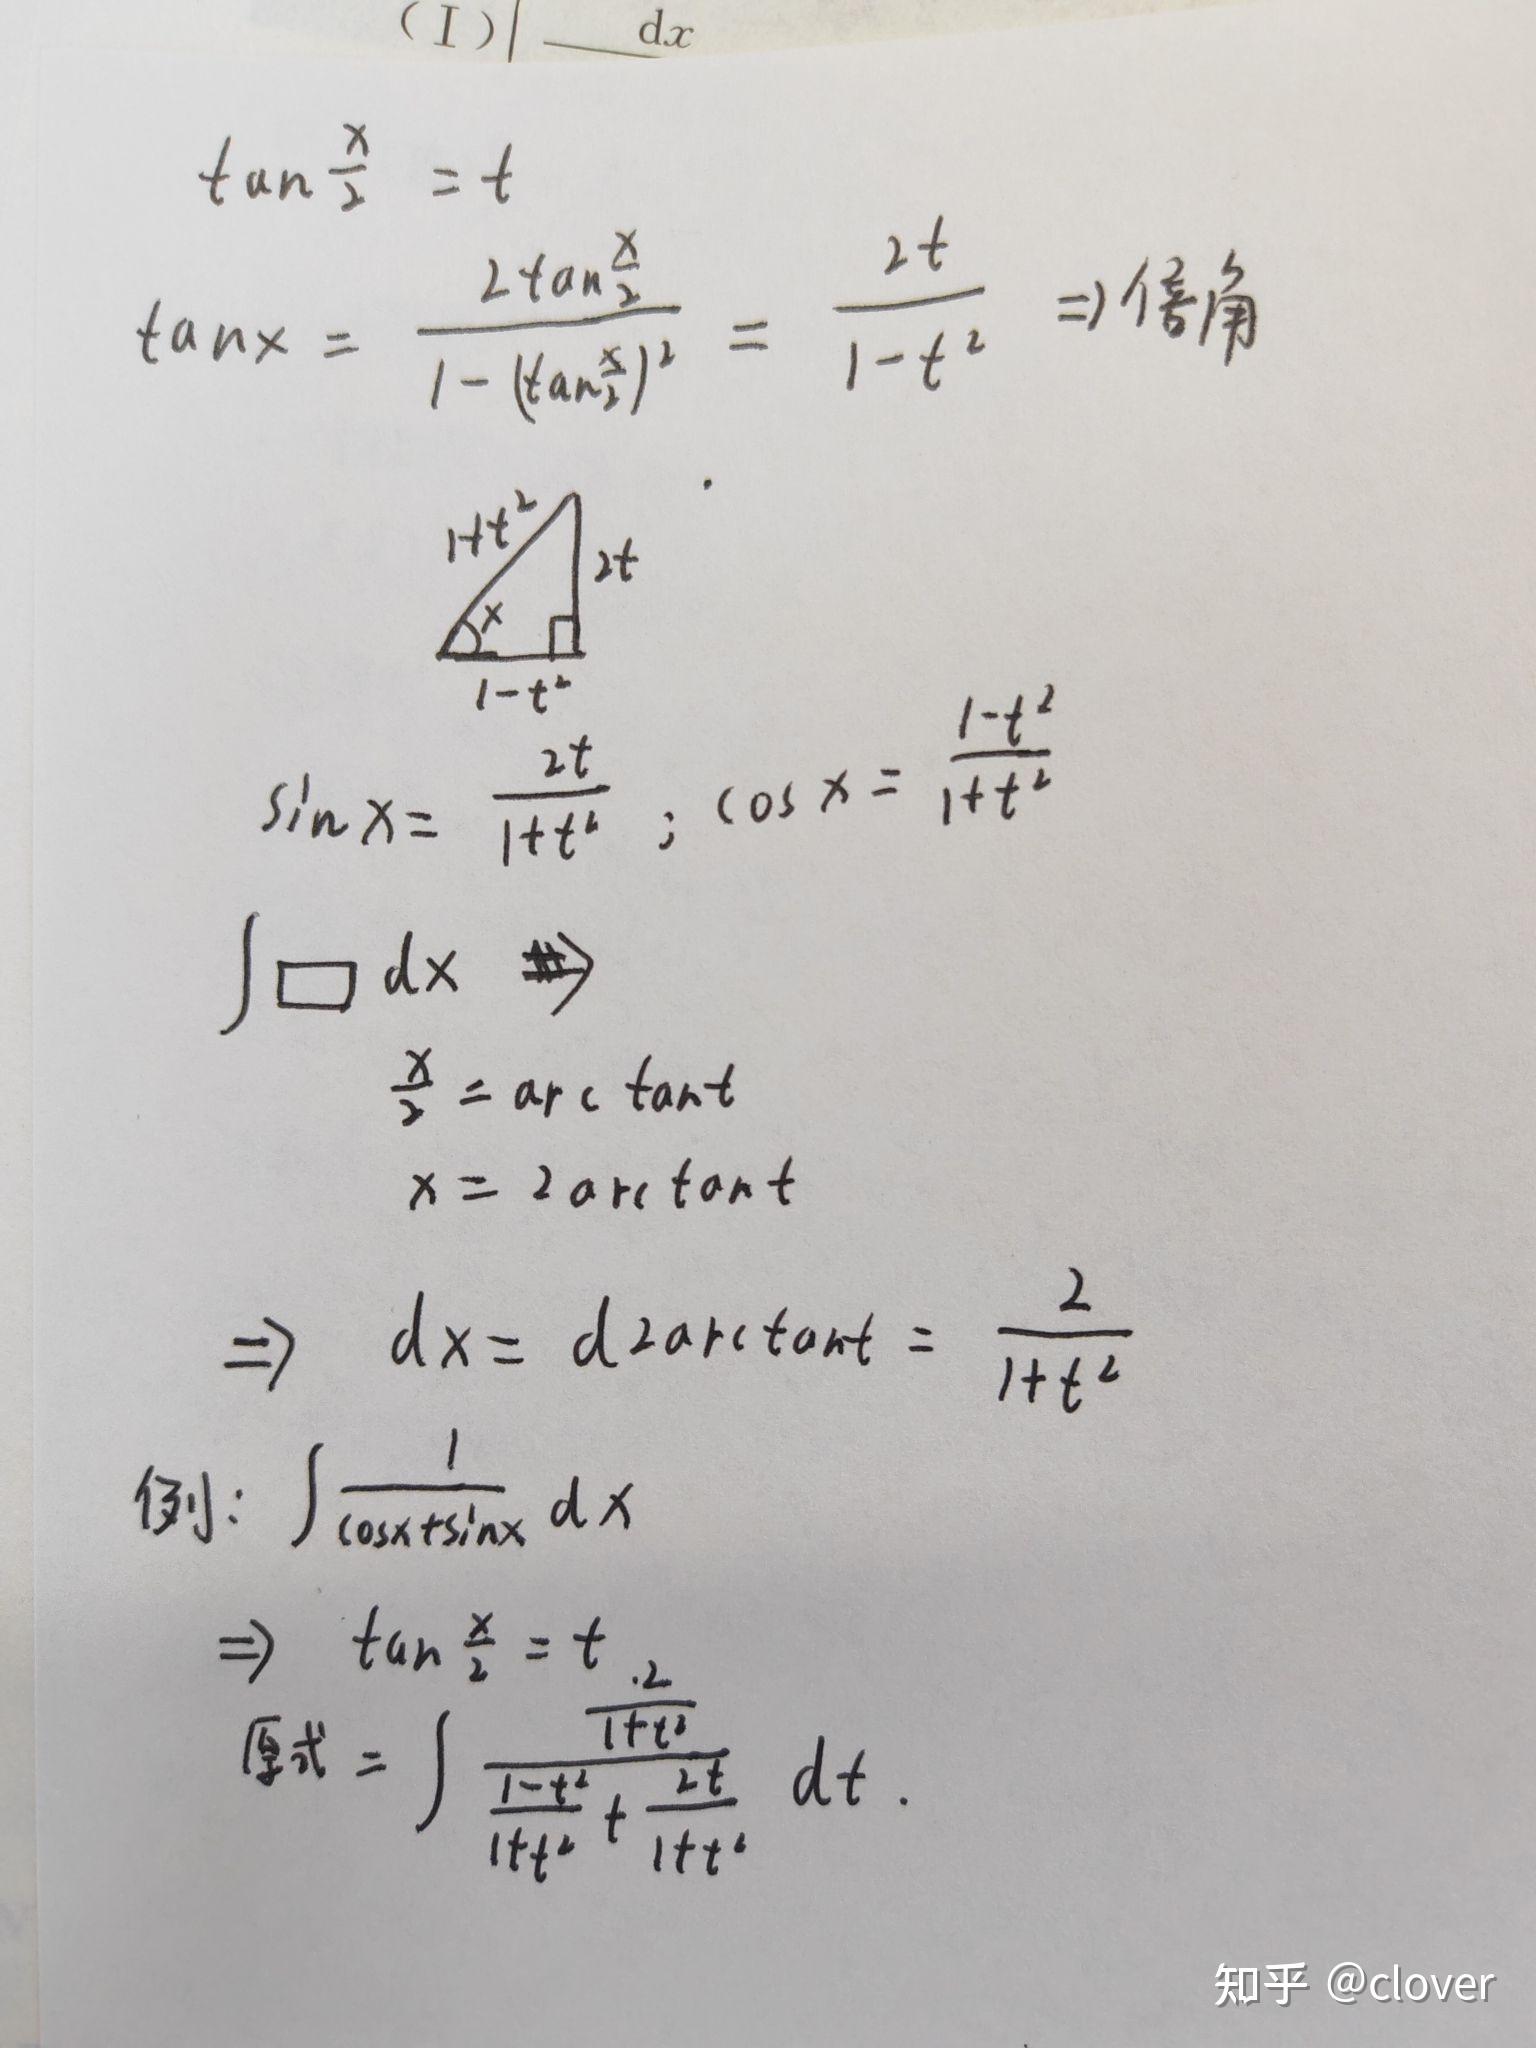 (I) ∫ dx
tan x/2 = t
tanx = 2tan x/2 / 1-(tan x/2)² = 2t / 1-t² ⇒ 倍角
1+t²
2t
x
1-t²
sinx = 2t / 1+t² ; cosx = 1-t² / 1+t²
∫ □ dx ⇒
x/2 = arctant
x = 2arctant
⇒ dx = d2arctant = 2 / 1+t²
例: ∫ 1 / cosx+sinx dx
⇒ tan x/2 = t
原式 = ∫ (2 / 1+t²) / (1-t² / 1+t² + 2t / 1+t²) dt.
知乎 @clover